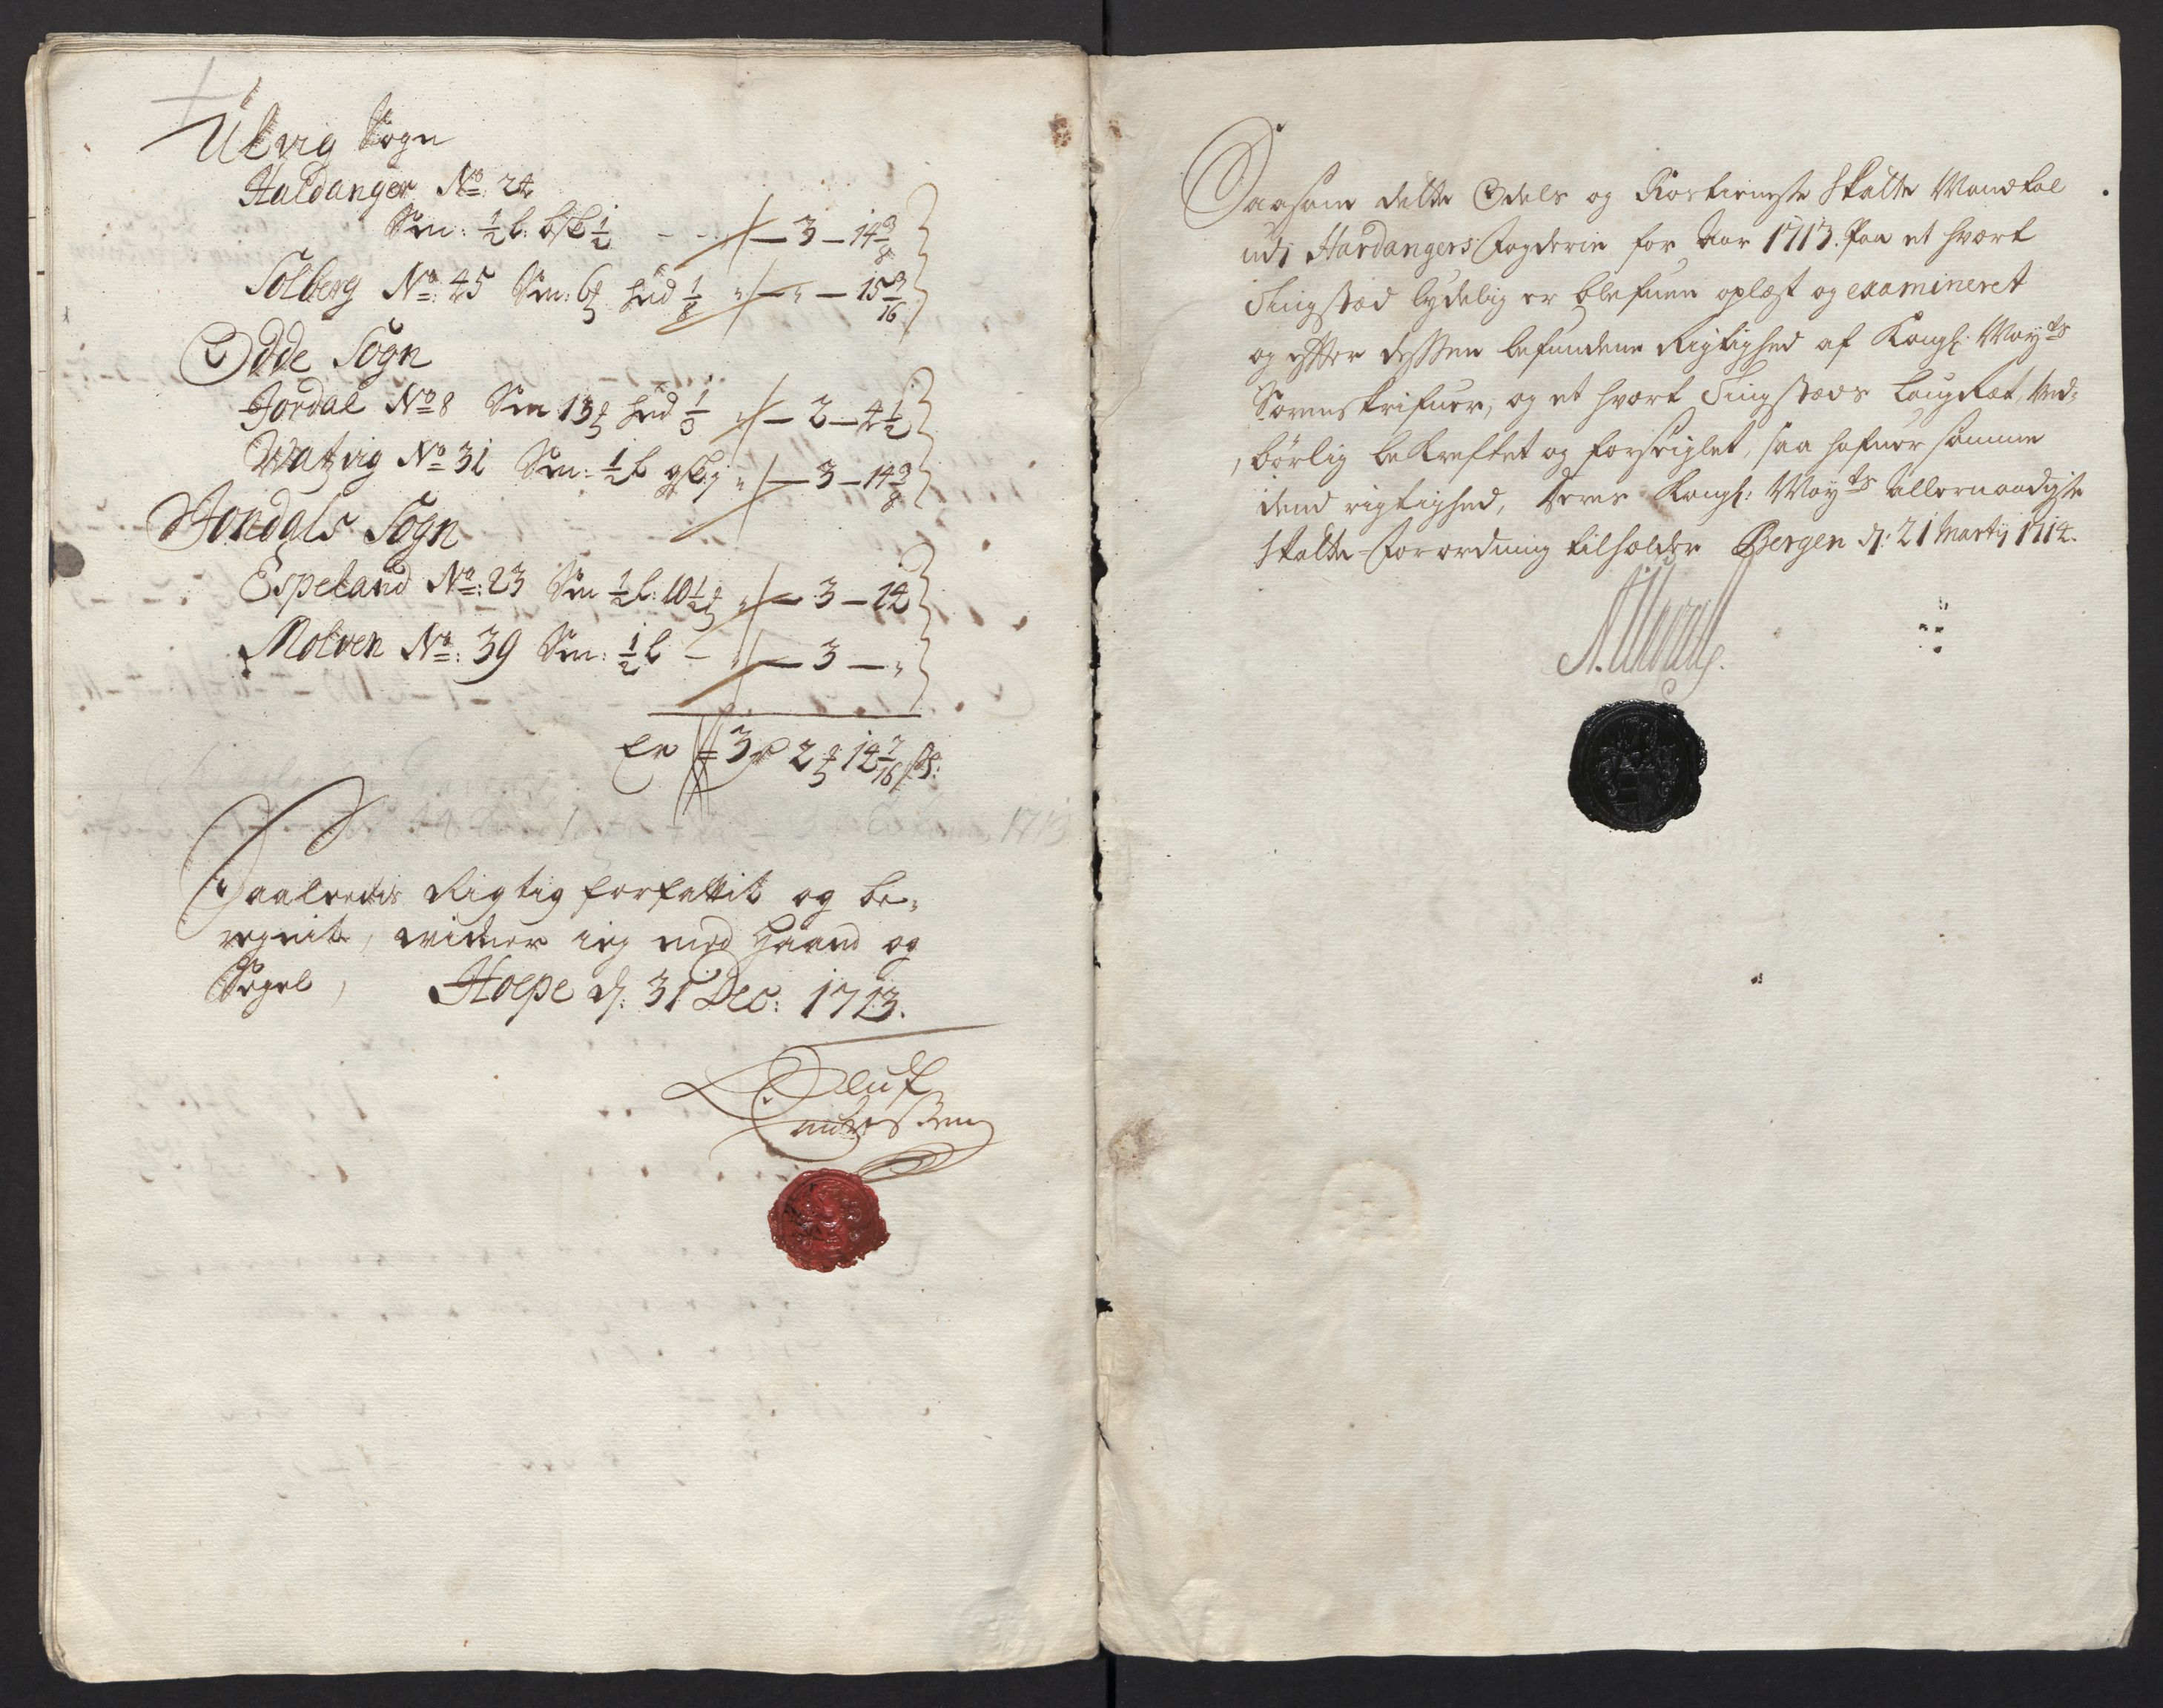 Ulvig Sogn
Haldanger No: 24
Sm: 1/2 L: b ß 1/2 - - - 3 - 14 3/8
Solberg No: 45 Sm: 6 hud 1/8 " - " - 15 3/16
Odde Sogn
Jordal No 8 Sm 13 hud 1/3 " - 2 - 4 1/2
Watzvig No 31 Sm: 1/2 L " - 3 - 14 3/8
Jondals Sogn
Espeland No: 23 Sm 1/2 L: 10 1/2 " - 3 - 12
Molven No: 39 Sm: 1/2 L - " - 3 - "
Er 3 2 14 7/16 ß:
Saaledis Rigtig forfattit og be-
regnit, vidner ieg med Haand og
Segel, Hoepe d: 31 Dec: 1713.
Oluf
Saasom dette Odels og Rostieniste Skatte Mandtal
udi Hardangers Fogderie for Aar 1713. paa et hvert
Tingstæd lydelig er blefuen oplæst og examineret
og efter dessen befundene Rigtighed af Kongl. Mayts
Sorenskrifuer, og et hvert Tingstæds LaugRæt, ved-
børlig bekreftet og forseiglet, saa hafuer samme
dend rigtighed, deres Kongl: Mayts Allernaadigste
Skatte-Forordning tilholder Bergen d: 21 Martij 1714.